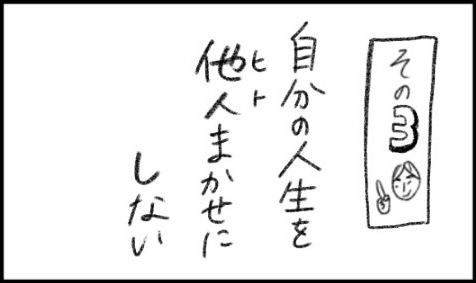 その3
自分の人生を
他人まかせに
ヒト
しない